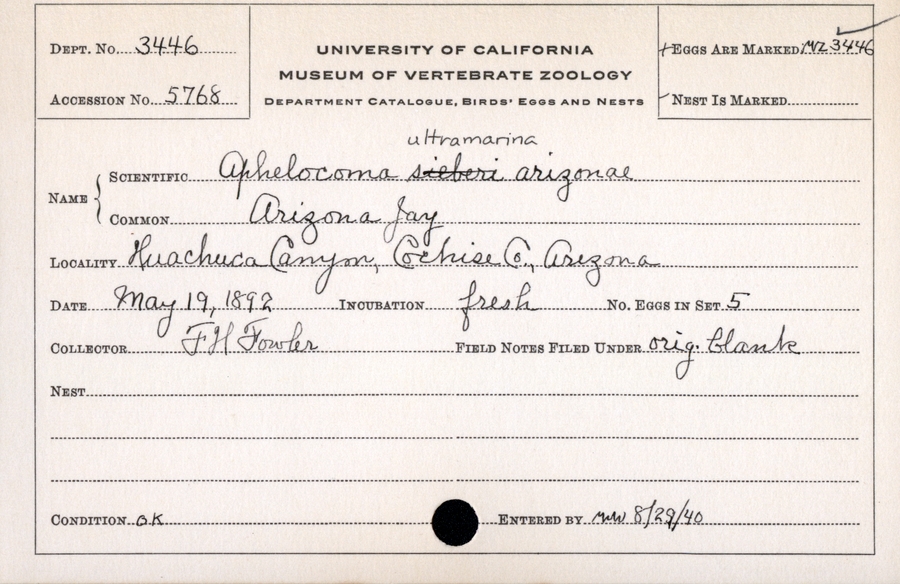 Dept. No. 3446
Accession No. 5768
UNIVERSITY OF CALIFORNIA
MUSEUM OF VERTEBRATE ZOOLOGY
Department Catalogue, Birds' Eggs and Nests
Eggs Are Marked MZ 3446
Nest Is Marked
ultramarina
Name
Scientific Aphelocoma sieberi arizonae
Common Arizona Jay
Locality Huachuca Canyon, Cochise Co., Arizona
Date May 19, 1892 Incubation fresh No. Eggs in Set 5
Collector F H Fowler Field Notes Filed Under orig. blank
Nest
Condition OK Entered by 8/29/40